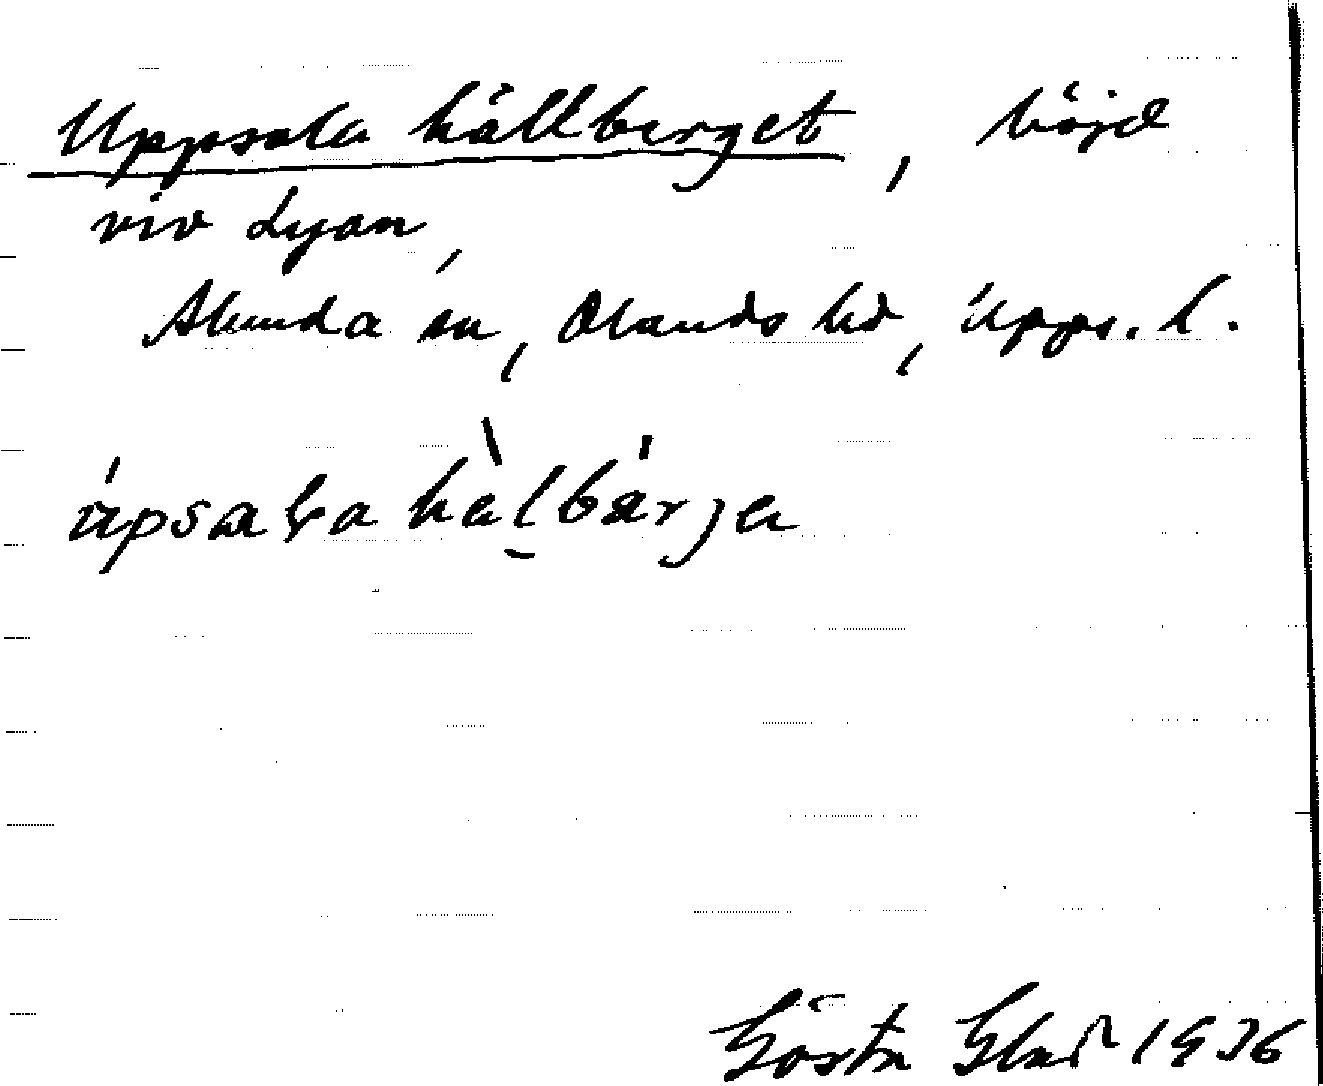 Uppsala hällberget, höjd
viv Lyan,
Alunda sn, Olands hd, Upps. l.
úpsaɽa hàl̠bárjɛ
Gösta 1936